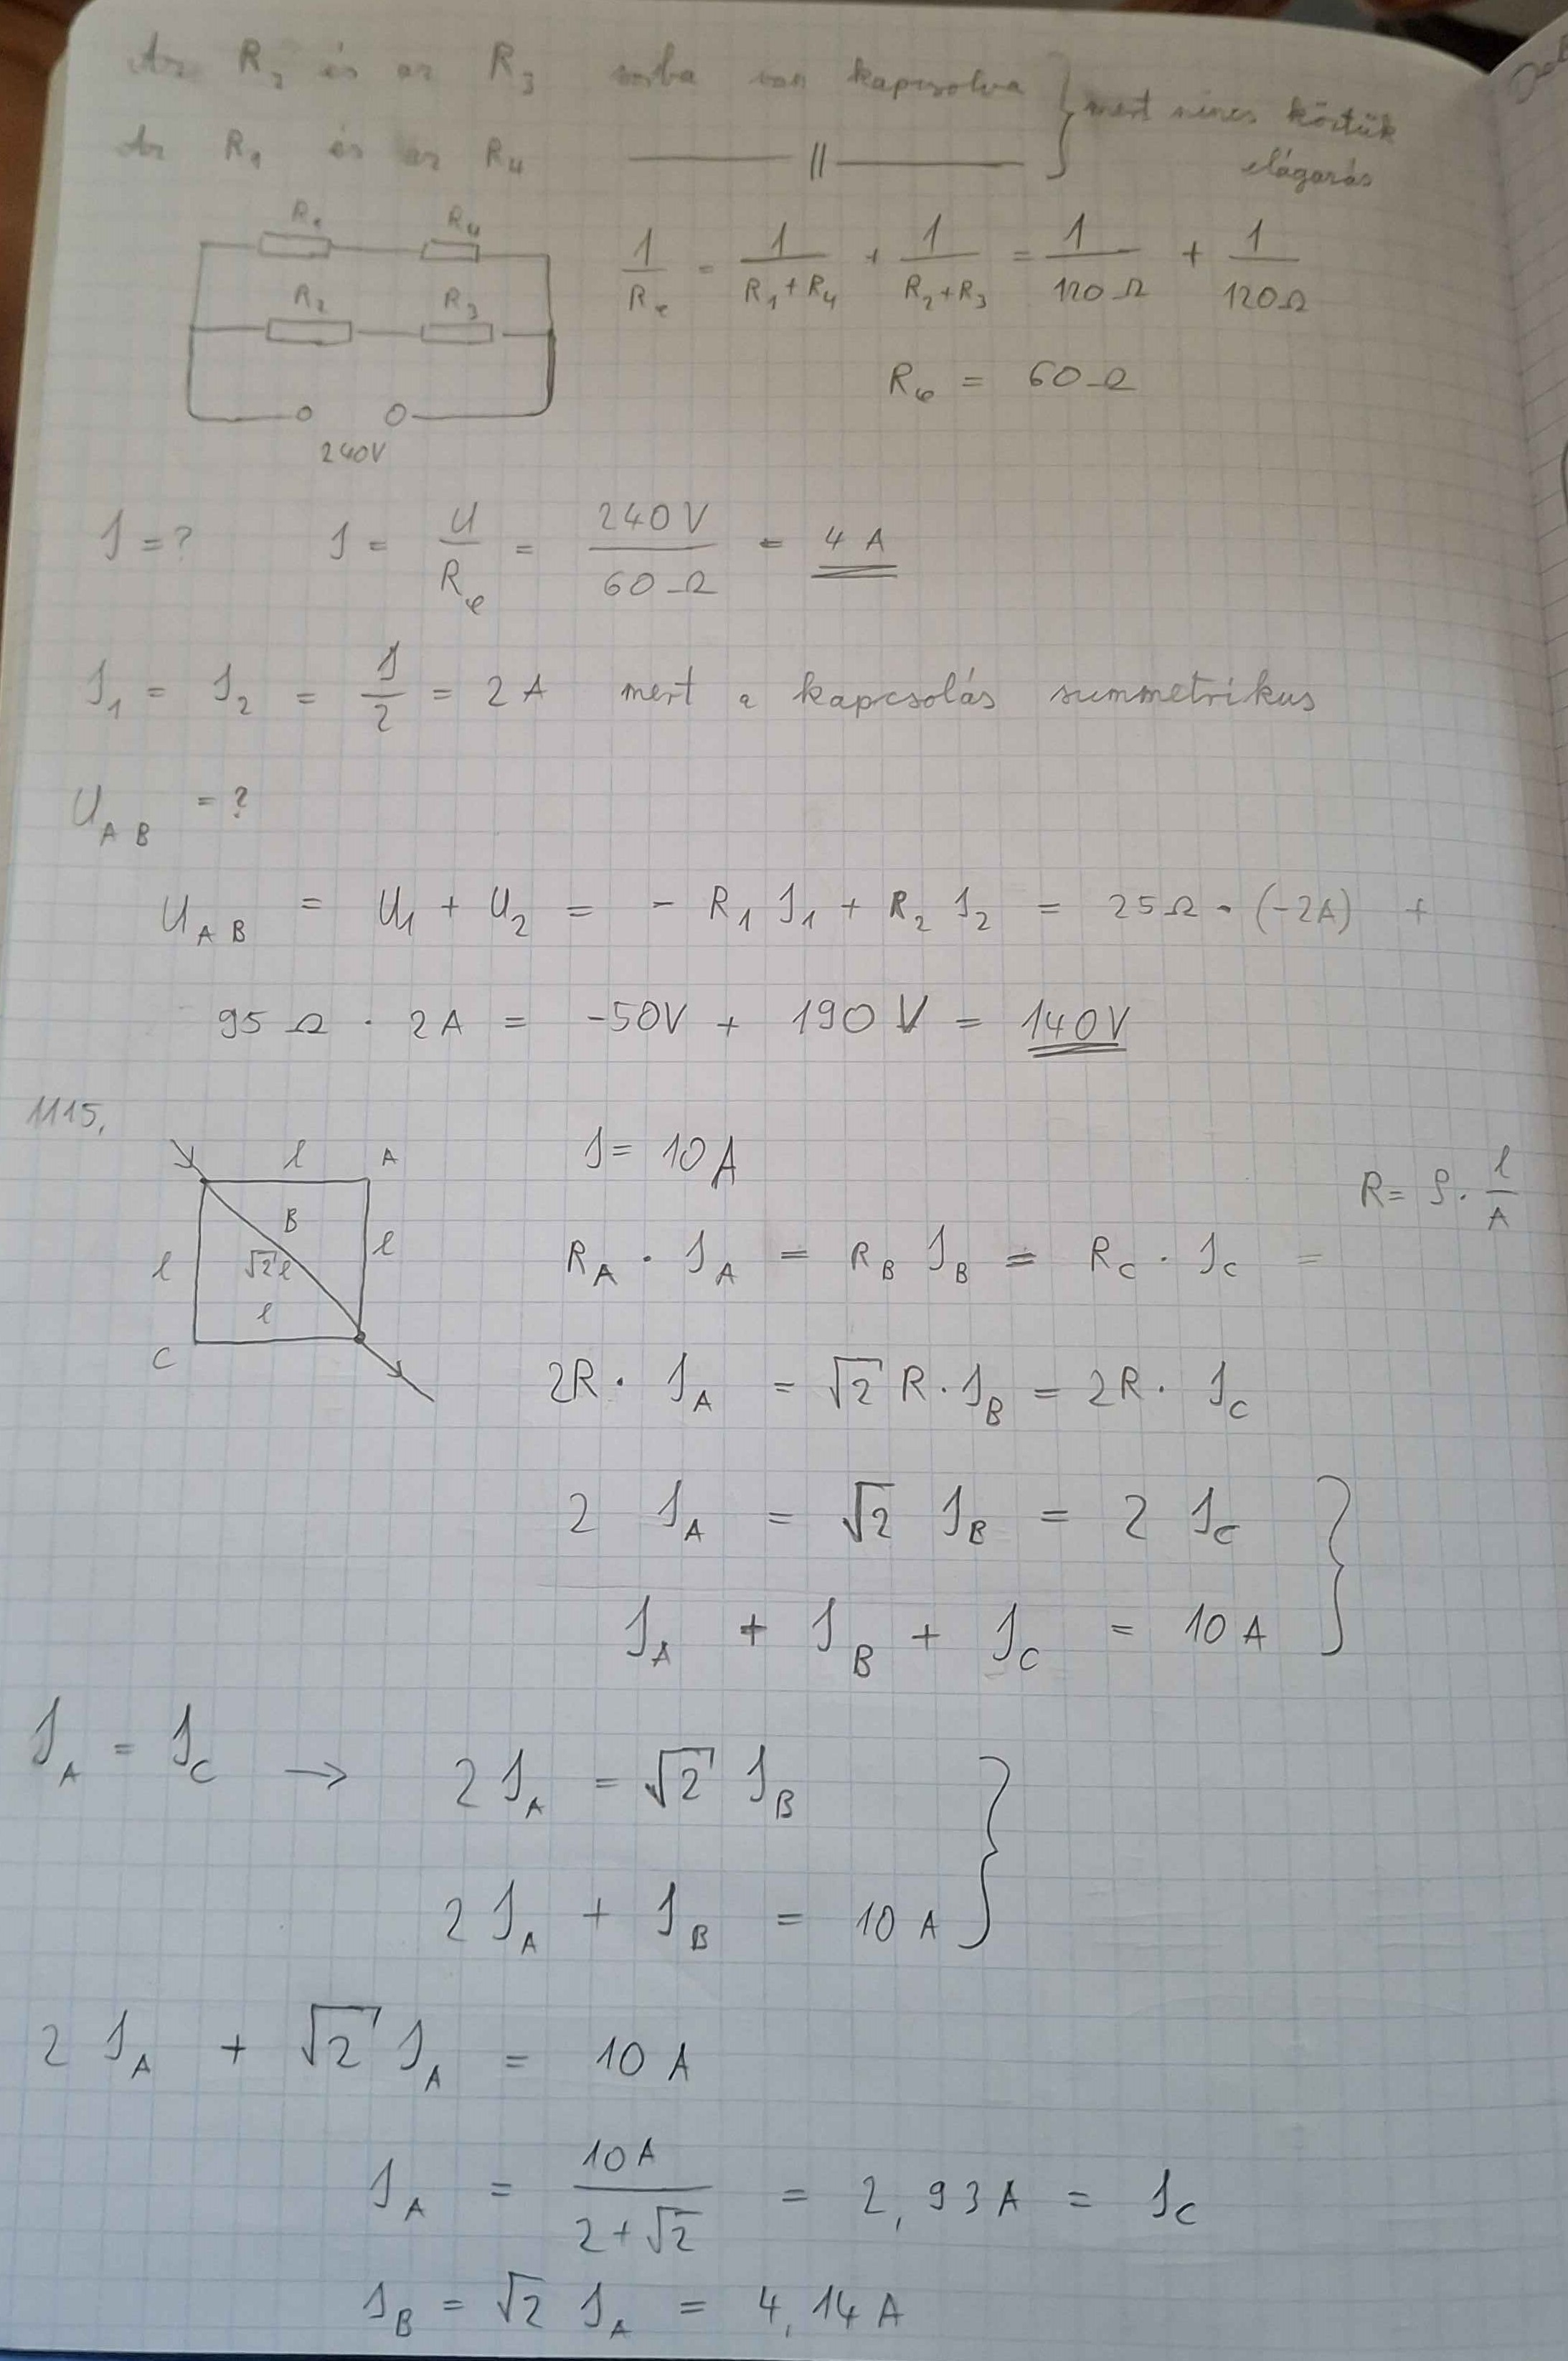 Az R₂ és az R₃ sorba van kapcsolva } mert nincs köztük
Az R₁ és az R₄ ——— || ——— elágazás
R₁ R₄
R₂ R₃
240V
1/Rₑ = 1/(R₁+R₄) + 1/(R₂+R₃) = 1/120Ω + 1/120Ω
Rₑ = 60Ω
I = ? I = U/Rₑ = 240V/60Ω = 4 A
I₁ = I₂ = I/2 = 2 A mert a kapcsolás summetrikus
U_AB = ?
U_AB = U₁ + U₂ = - R₁ I₁ + R₂ I₂ = 25Ω · (-2A) +
95 Ω · 2A = -50V + 190 V = 140V
1115.
l A
B
l √2 l l
l
C
I = 10 A
R = ρ · l/A
R_A · I_A = R_B I_B = R_C · I_C =
2R · I_A = √2 R · I_B = 2R · I_C
2 I_A = √2 I_B = 2 I_C }
I_A + I_B + I_C = 10 A
I_A = I_C → 2 I_A = √2 I_B }
2 I_A + I_B = 10 A
2 I_A + √2 I_A = 10 A
I_A = 10A/(2+√2) = 2,93A = I_C
I_B = √2 I_A = 4,14 A